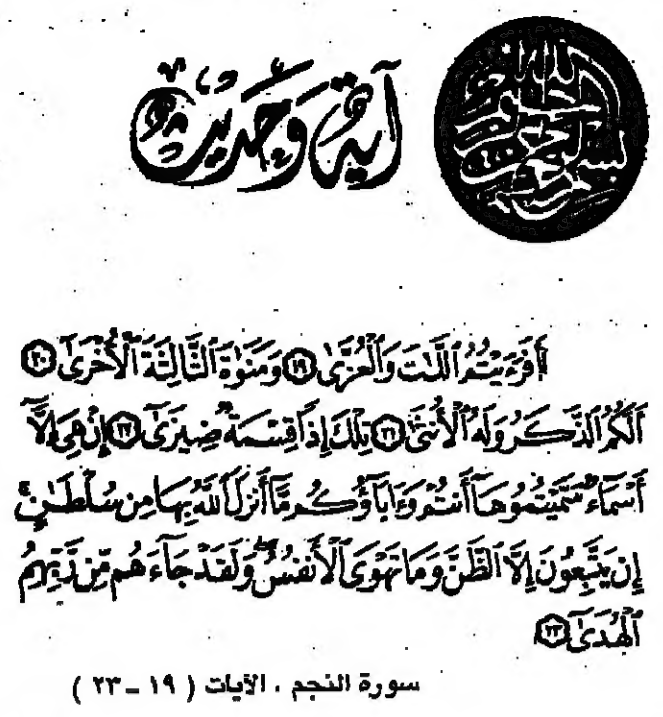 بسم الله الرحمن الرحيم
آية وحديث
أَفَرَءَيْتُمُ ٱللَّٰتَ وَٱلْعُزَّىٰ ١٩ وَمَنَوٰةَ ٱلثَّالِثَةَ ٱلْأُخْرَىٰٓ ٢٠
أَلَكُمُ ٱلذَّكَرُ وَلَهُ ٱلْأُنثَىٰ ٢١ تِلْكَ إِذًا قِسْمَةٌ ضِيزَىٰٓ ٢٢ إِنْ هِىَ إِلَّآ
أَسْمَآءٌ سَمَّيْتُمُوهَآ أَنتُمْ وَءَابَآؤُكُم مَّآ أَنزَلَ ٱللَّهُ بِهَا مِن سُلْطَٰنٍ ۚ
إِن يَتَّبِعُونَ إِلَّا ٱلظَّنَّ وَمَا تَهْوَى ٱلْأَنفُسُ ۖ وَلَقَدْ جَآءَهُم مِّن رَّبِّهِمُ
ٱلْهُدَىٰٓ ٢٣
سورة النجم ، الآيات ( ١٩ - ٢٣ )